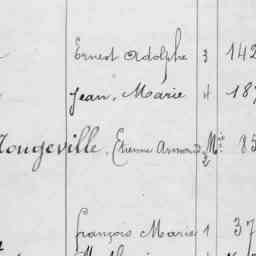 Ernest Adolphe 3 142
Jean, Marie 4 187
Mougeville, Etienne Armand, Mie 2 85
François Marie 1 37